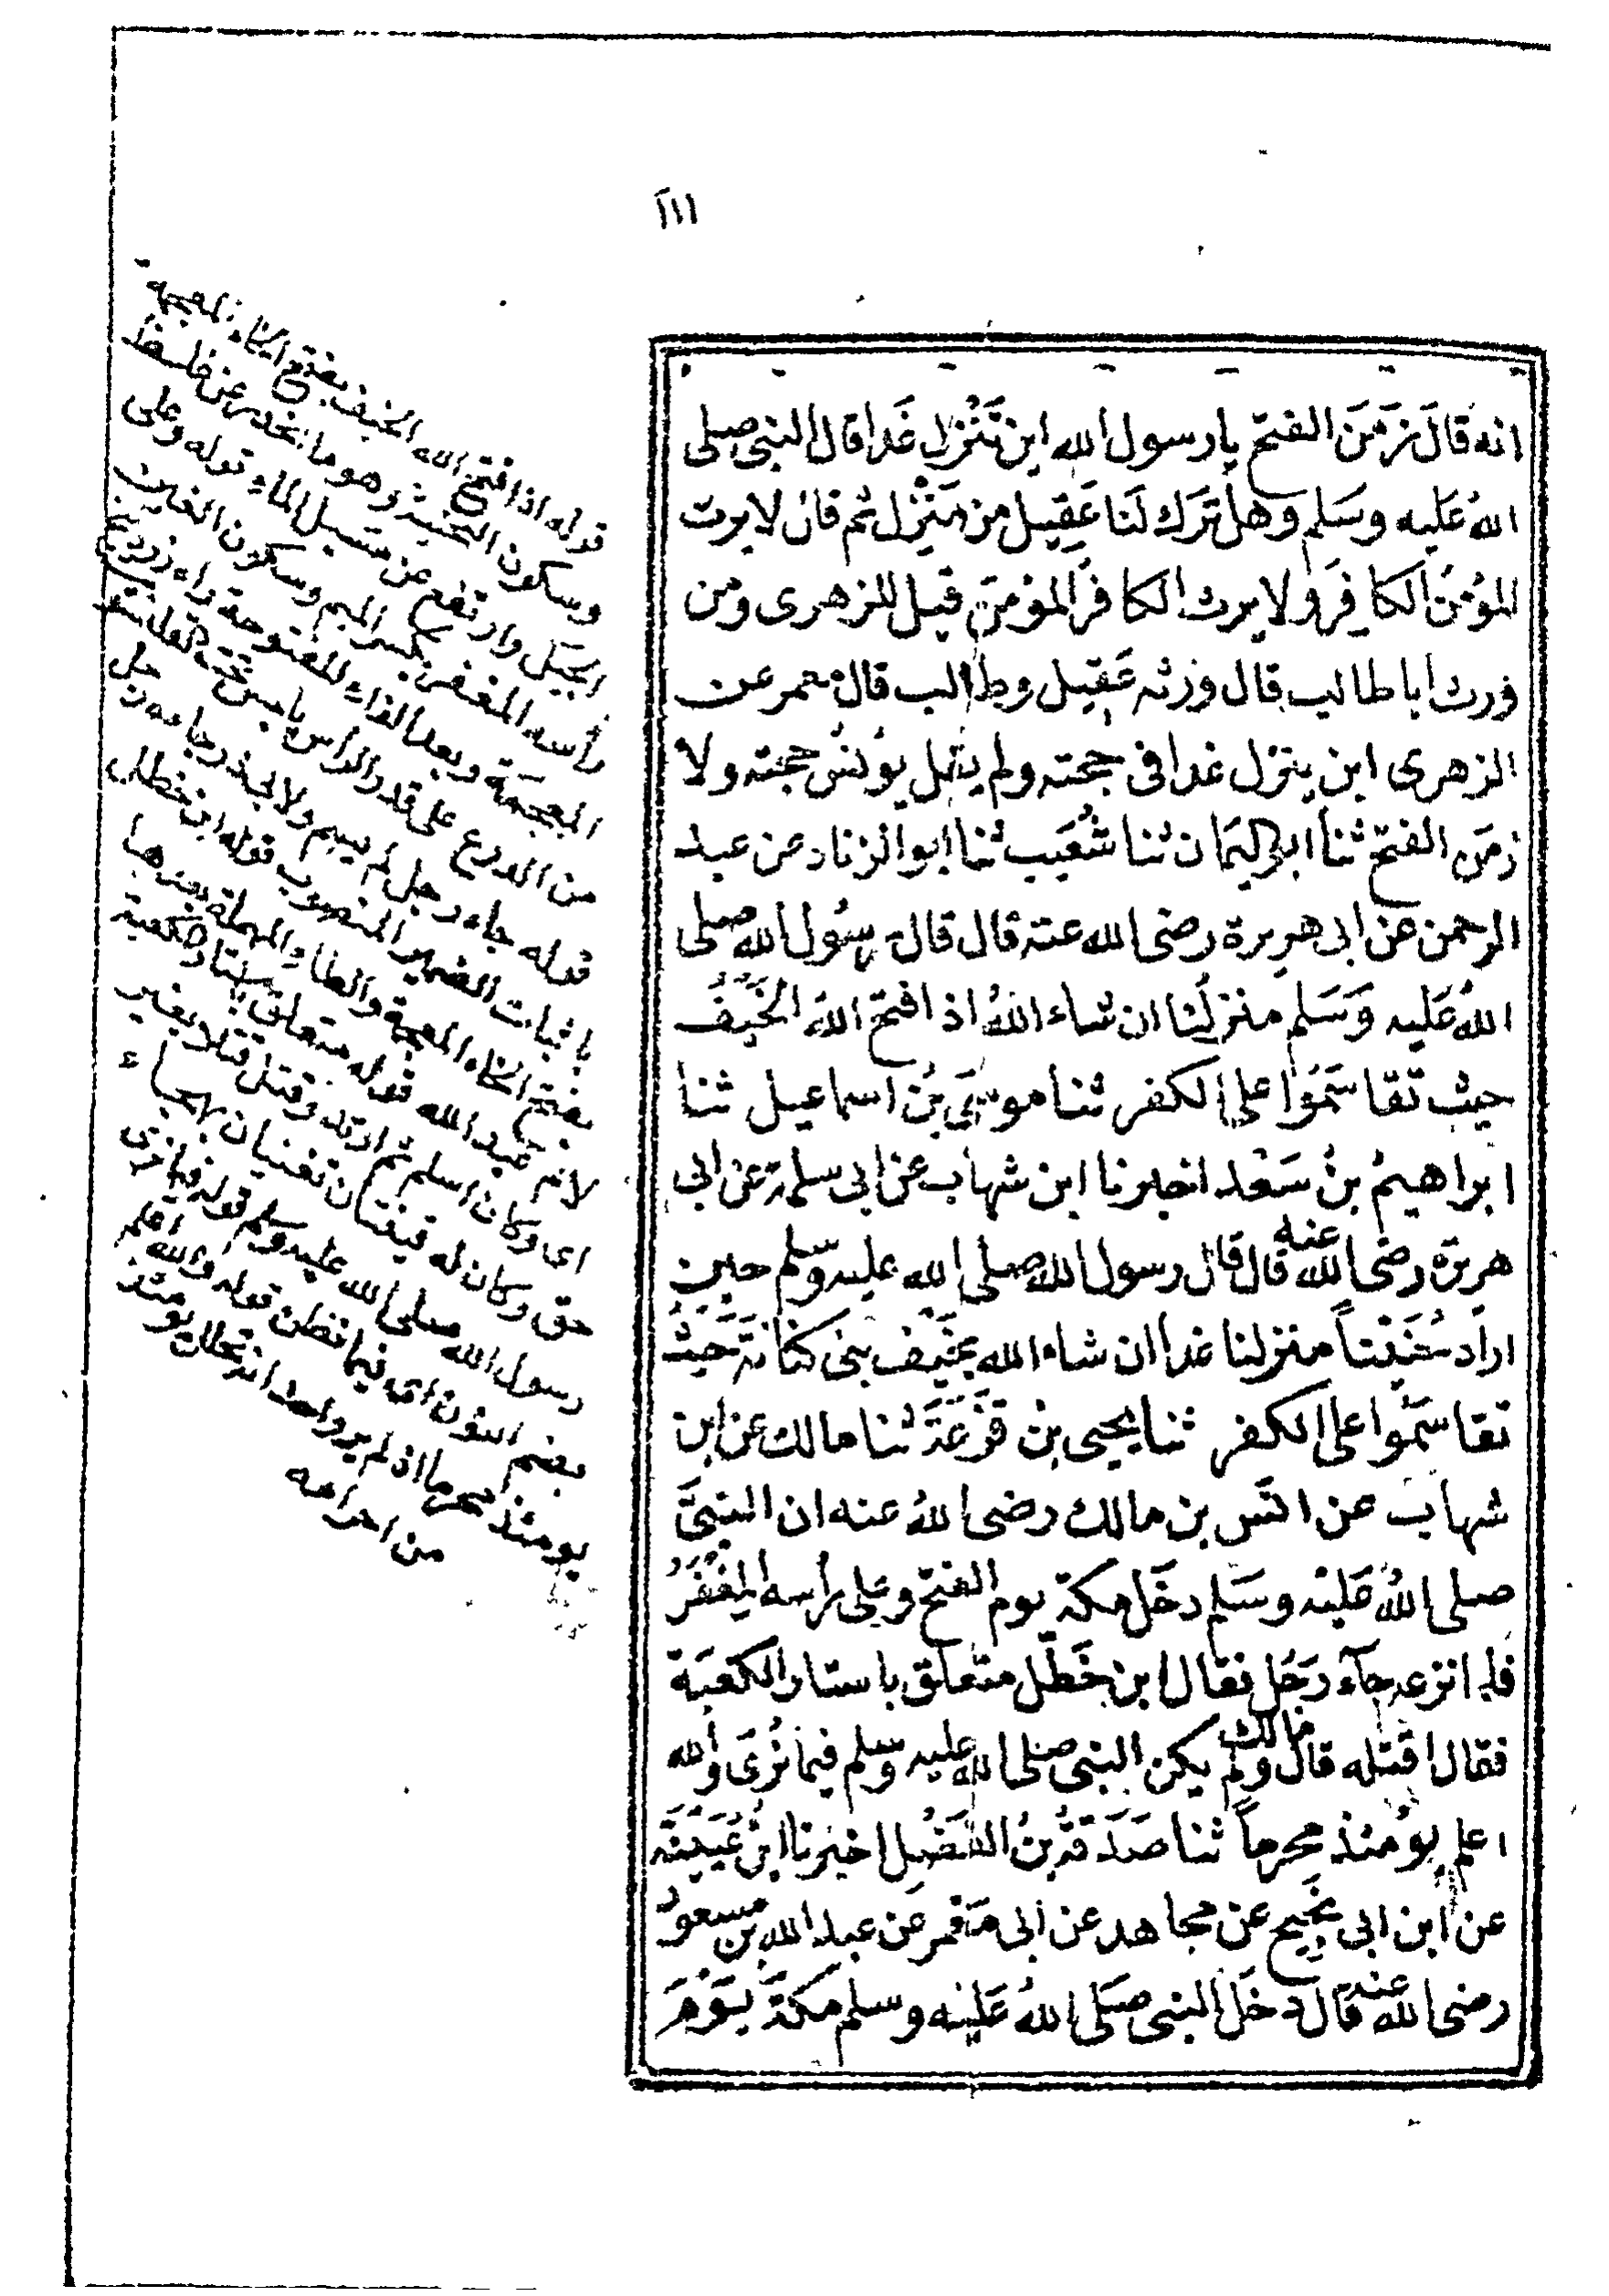 ١١١
انه قالَ زَمَنَ الفتح يارسول الله اين تَنْزِل غَدا قال النبى صلى
اللهُ عَليه وسَلم وهل تَرَك لَنا عَقِيل من مَنْزِل ثم قال لا يرث
المؤمنُ الكافِرَ ولا يرث الكافرُ المؤمنَ قيل للزهرى ومن
ورث اباطالب قال ورثه عَقِيل وطالب قال معمر عن
الزهرى اين ينزل غدا فى حجته ولم يقل يونس حجته ولا
زمَن الفتح ثنا ابو اليمان ثنا شُعَيب ثنا ابوالزناد عن عبد
الرحمن عن ابى هريرة رضى الله عنه قال قال رسُول الله صلى
اللهُ عَليه وَسَلم منزلُنا ان شاء اللهُ اذا فتح اللهُ الخَيْفُ
حيث تقاسَمُوا على الكفر ثنا موسَى بنُ اسماعيل ثنا
ابراهيمُ بنُ سَعْد اخبرنا ابن شهاب عن ابى سلمة عن ابى
هريرة رضى الله عنه قال قال رسول الله صلى الله عليه وسلم حين
اراد حُنَيْناً منزلنا غدا ان شاء الله بخَيْف بنى كنانَة حَيْثُ
تقاسَمُوا على الكفر ثنا يحيى بن قَزَعَةَ ثنا مالك عن ابن
شهاب عن انَس بن مالك رضى اللهُ عنه ان النبىَّ
صلى اللهُ عَليْه وسَلم دخَل مكة يوم الفتح وعلى رأسه المِغْفَرُ
فلما نزعه جآء رَجُل فقال ابن خَطَل متعلق باستار الكعبَة
فقال اقتله قال مالك ولم يكن النبى صلى الله عليه وسلم فيما نُرَى والله
اعلم يَوْمئذ محرماً ثنا صَدَقةُ بنُ الفَضْل اخبرنا ابْنُ عُيَيْنَة
عن ابن ابى نَجِيح عن مجاهد عن ابى مَعْمر عن عبد الله بن مسعود
رضى الله عنه قال دخَل النبى صَلى اللهُ عَليْه وسلم مكةَ يَوْمَ
قوله اذا فتح الله الخيف بفتح الخاء المعجمة
وسكون التحتية وهو ما انحدر عن غلظ
الجبَل وارتفع عن مسيل الماء قوله وعلى
رأسه المغفر بكسر الميم وسكون الغين
المعجمة وبعد الفاء المفتوحة راء زرد ينسج
من الدروع على قدر الرأس يلبس تحت القلنسوة
قوله جاء رجل لم يسم ولابى ذر جاءه رجل
باثبات الضمير المنصوب قوله ابن خطل
بفتح الخاء المعجمة والطاء المهملة بعدها
لام عبد الله قوله متعلق باستار الكعبة
اى وكان اسلم ثم ارتد وقتل قتلا بغير
حق وكان له قينتان تغنيان بهجاء
رسول الله صلى الله عليه وسلم قوله فيما نرى
بضم النون اى فيما نظن قوله والله اعلم
يومئذ محرما اذ لم يرو احد انه تحلل يومئذ
من احرامه